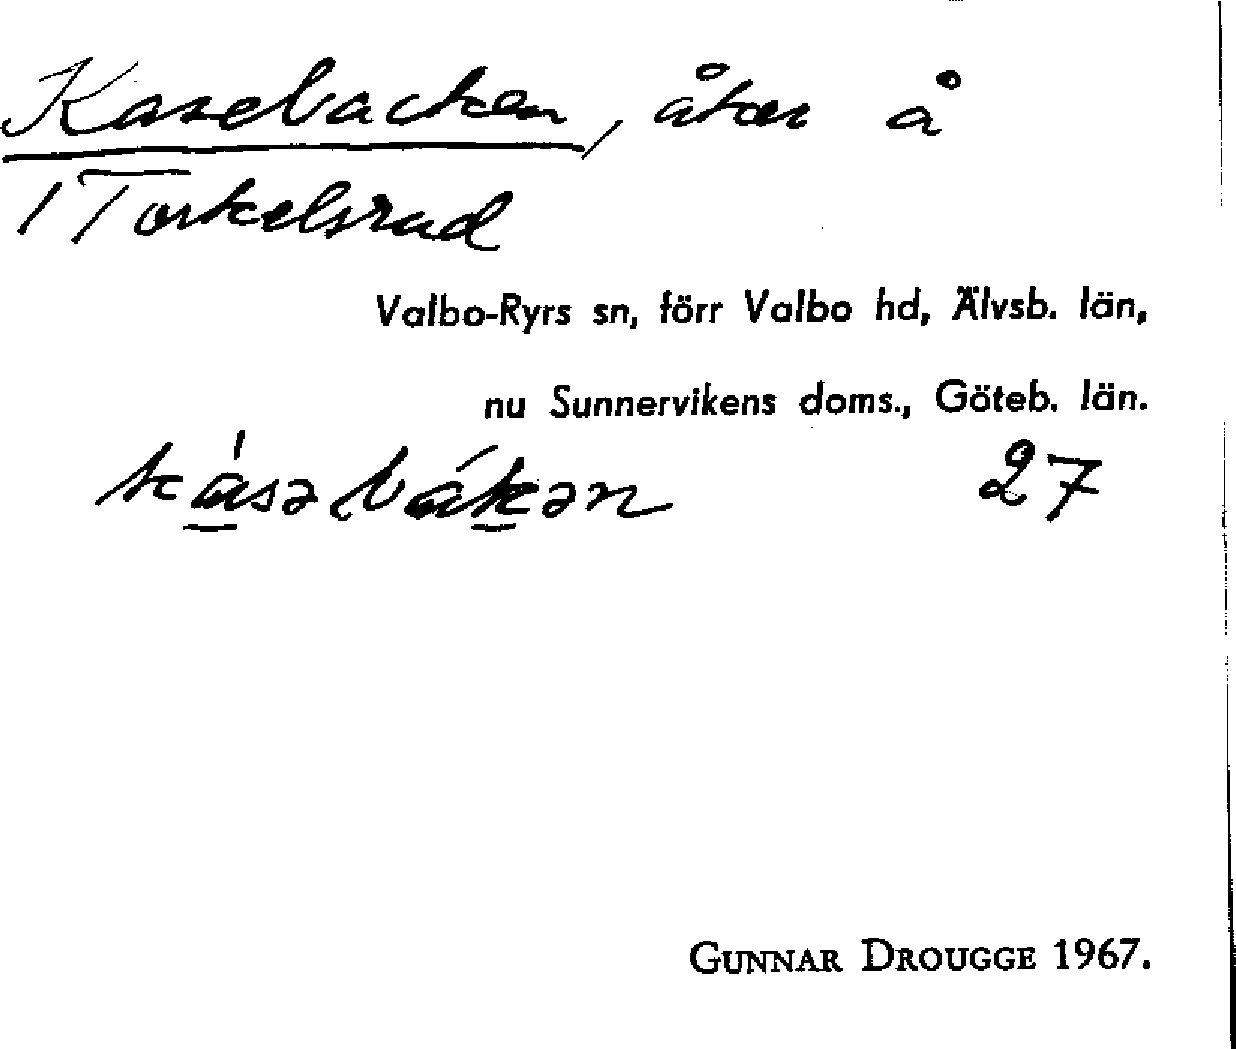 Kasebacken, åker å
1 Torkelsrud
Valbo-Ryrs sn, förr Valbo hd, Älvsb. län,
nu Sunnervikens doms., Göteb. län.
kásəbákən 27
GUNNAR DROUGGE 1967.